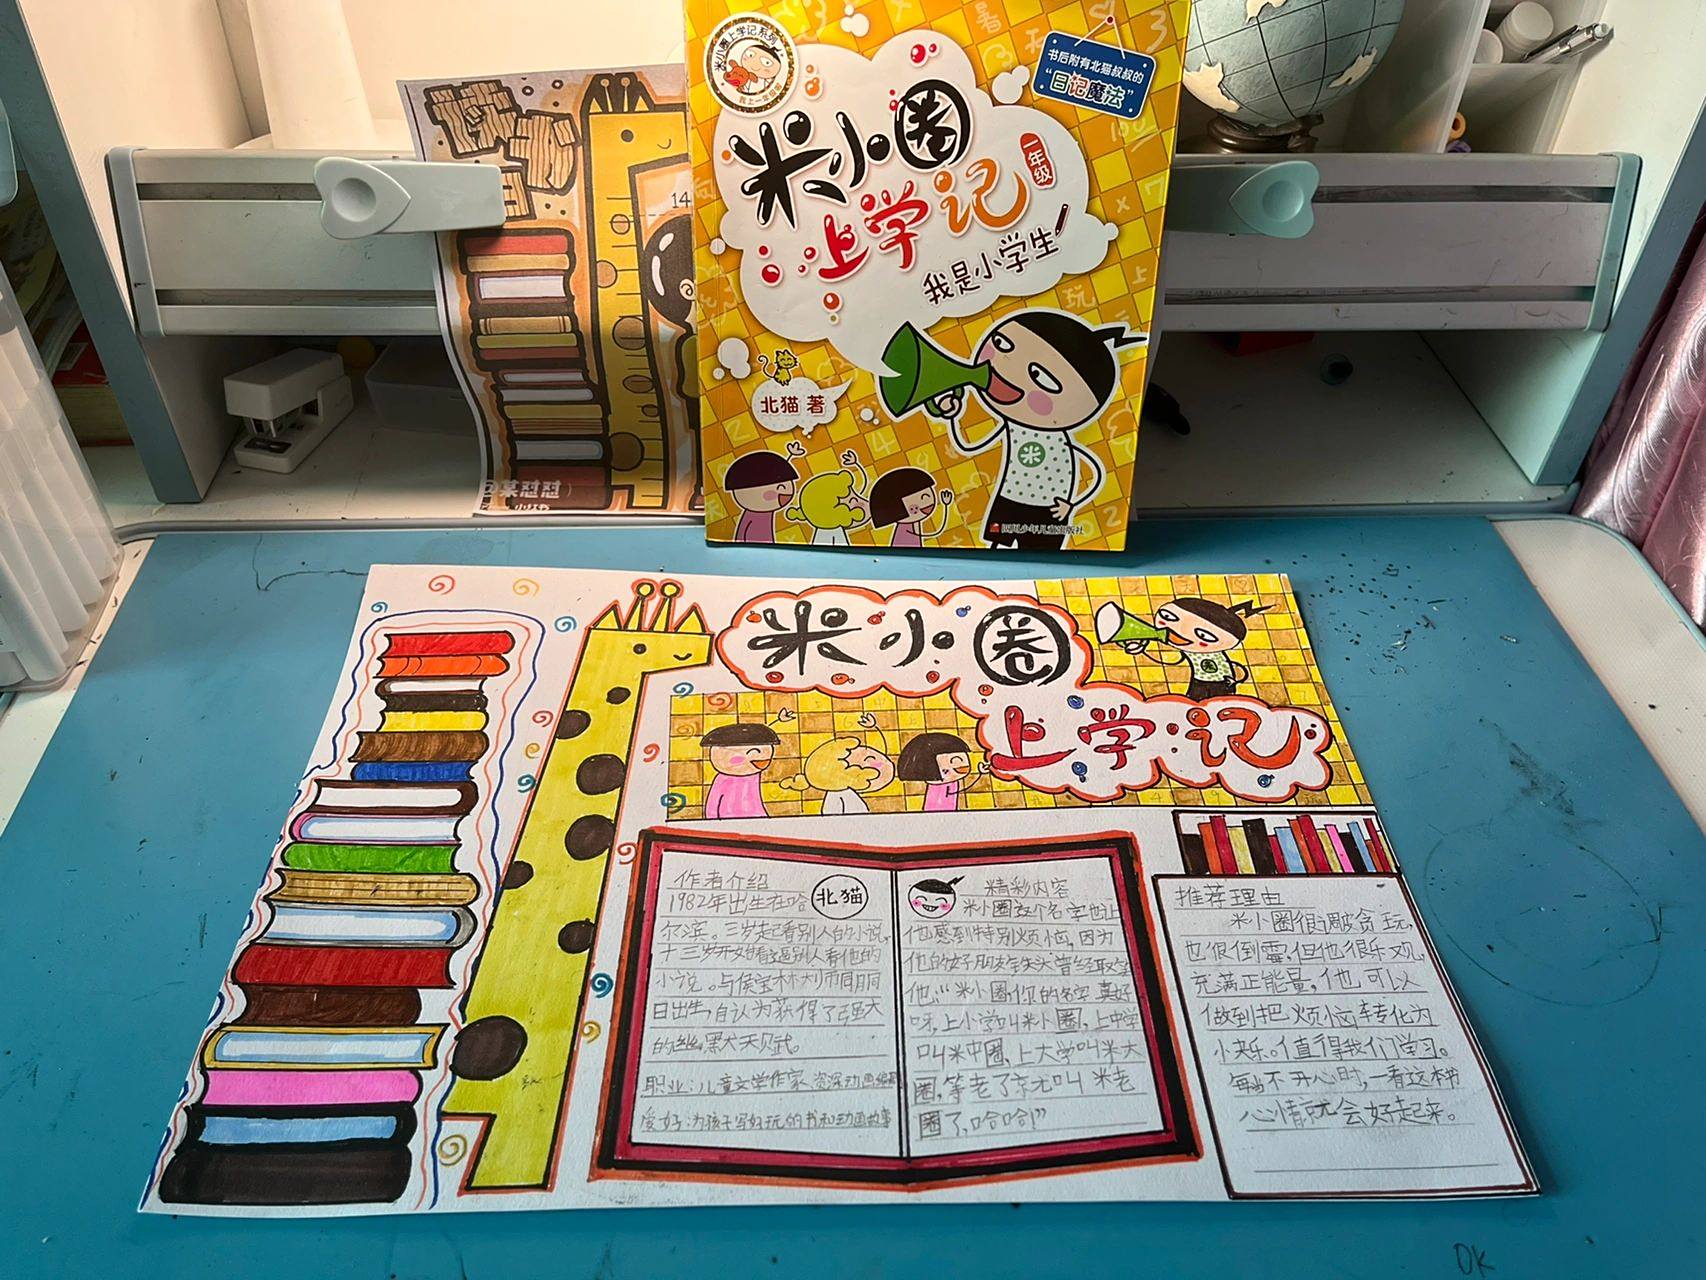 米小圈上学记系列
我上一年级
书后附有北猫叔叔的
“日记魔法”
米小圈
上学记
一年级
我是小学生
北猫 著
米
四川少年儿童出版社
14
米小圈
上学记
作者介绍
北猫
1982年出生在哈
尔滨。三岁起看别人的小说,
十三岁开始看着别人看他的
小说。与侯宝林大师同月同
日出生,自认为获得了强大
的幽默天赋。
职业:儿童文学作家、资深动画编剧
爱好:为孩子写好玩的书和动画故事
精彩内容
米小圈这个名字他让
他感到特别烦恼,因为
他的好朋友铁头曾经取笑
他:“米小圈你的名字真好
呀,上小学叫米小圈,上中学
叫米中圈,上大学叫米大
圈,等老了就叫米老
圈了,哈哈!”
推荐理由
米小圈很调皮贪玩,
也很倒霉,但他很乐观,
充满正能量,他可以
做到把烦恼转化为
小快乐。值得我们学习。
每当不开心时,一看这本书
心情就会好起来。
OK